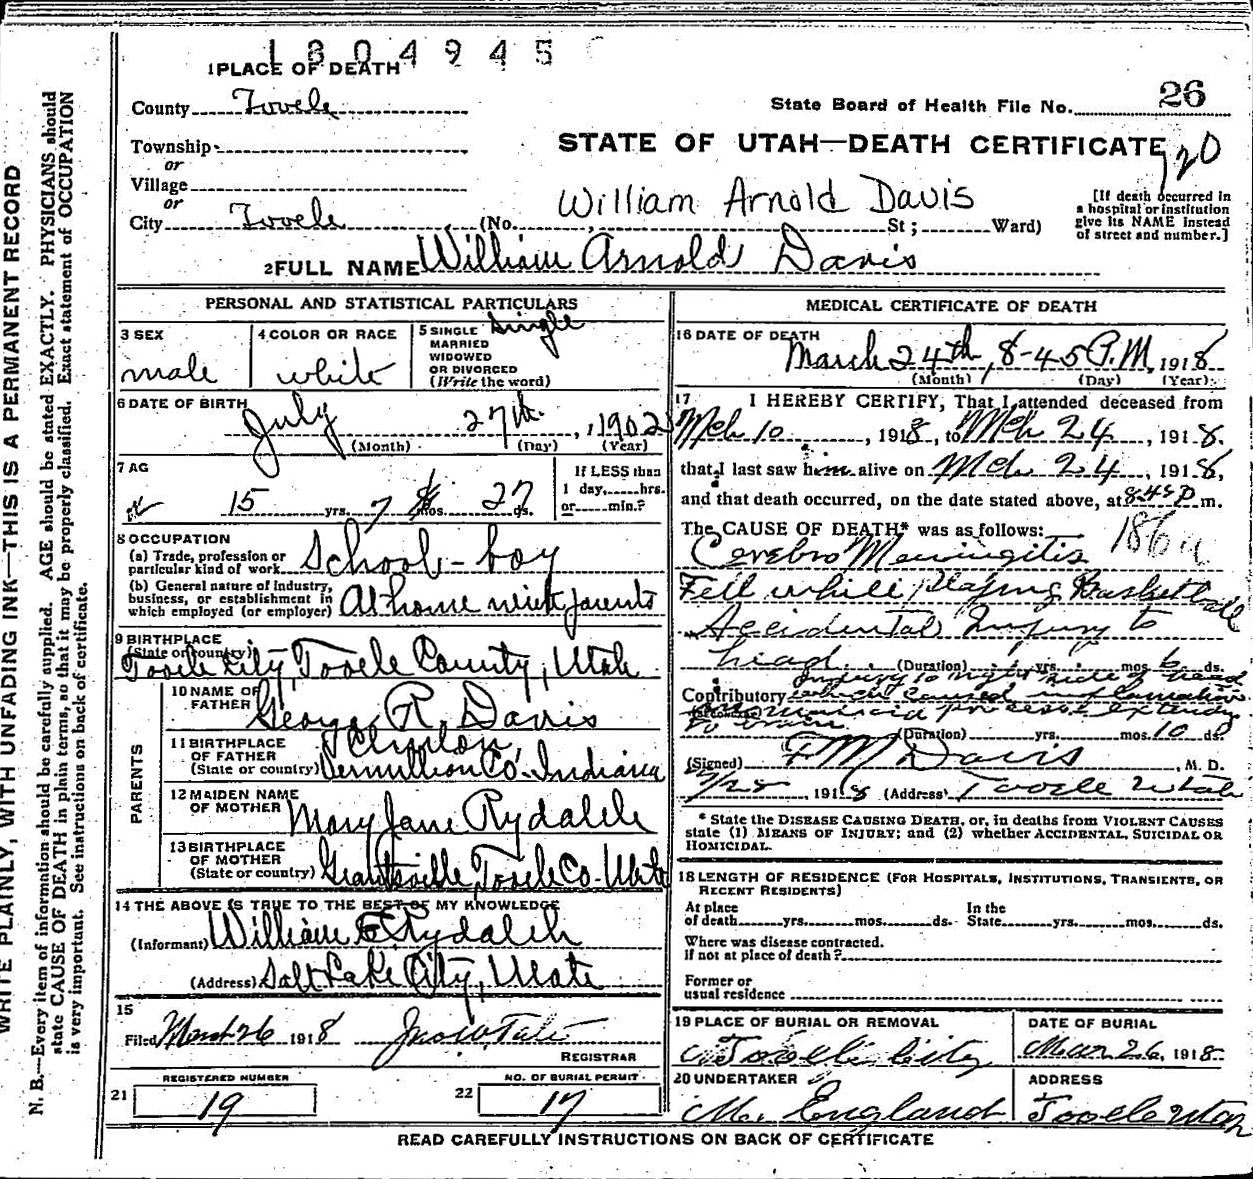 1804945
1 PLACE OF DEATH
County Tooele
State Board of Health File No. 26
Township
or
STATE OF UTAH—DEATH CERTIFICATE
120
Village
or
William Arnold Davis
City Tooele (No. St; Ward)
[If death occurred in
a hospital or institution
give its NAME instead
of street and number.]
2 FULL NAME William Arnold Davis
PERSONAL AND STATISTICAL PARTICULARS
3 SEX
male
4 COLOR OR RACE
white
5 SINGLE
MARRIED
WIDOWED
OR DIVORCED
(Write the word)
Single
6 DATE OF BIRTH
July 27th, 1902
(Month) (Day) (Year)
7 AG
15 yrs. 7 mos. 27 ds.
If LESS than
1 day, hrs.
or min.?
8 OCCUPATION
(a) Trade, profession or
particular kind of work School-boy
(b) General nature of industry,
business, or establishment in
which employed (or employer) At home with parents
9 BIRTHPLACE
(State or country)
Tooele City, Tooele County, Utah
PARENTS
10 NAME OF
FATHER
George R. Davis
11 BIRTHPLACE
OF FATHER
(State or country)
Clinton,
Vermillion Co. Indiana
12 MAIDEN NAME
OF MOTHER
Mary Jane Rydalch
13 BIRTHPLACE
OF MOTHER
(State or country)
Grantsville, Tooele Co. Utah
14 THE ABOVE IS TRUE TO THE BEST OF MY KNOWLEDGE
(Informant) William E Rydalch
(Address) Salt Lake City, Utah
15
Filed March 26 1918 Jno W. Tate
REGISTRAR
REGISTERED NUMBER
21 19
NO. OF BURIAL PERMIT
22 17
MEDICAL CERTIFICATE OF DEATH
16 DATE OF DEATH
March 24th, 8-45 P.M., 1918
(Month) (Day) (Year)
17 I HEREBY CERTIFY, That I attended deceased from
Mch 10, 1918, to Mch 24, 1918.
that I last saw him alive on Mch 24, 1918,
and that death occurred, on the date stated above, at 8.45 P m.
The CAUSE OF DEATH* was as follows:
186a
Cerebro Meningitis
Fell while playing Basketball
Accidental Injury to
head. (Duration) yrs. mos. 6 ds.
Injury to right side of head
Contributory which caused inflamation
process extending
to brain (Duration) yrs. mos. 10 ds.
(Signed) F M Davis, M. D.
1918 (Address) Tooele Utah
* State the DISEASE CAUSING DEATH, or, in deaths from VIOLENT CAUSES
state (1) MEANS OF INJURY; and (2) whether ACCIDENTAL, SUICIDAL OR
HOMICIDAL.
18 LENGTH OF RESIDENCE (FOR HOSPITALS, INSTITUTIONS, TRANSIENTS, OR
RECENT RESIDENTS)
At place
of death yrs. mos. ds.
In the
State yrs. mos. ds.
Where was disease contracted.
If not at place of death?
Former or
usual residence
19 PLACE OF BURIAL OR REMOVAL
Tooele City
DATE OF BURIAL
Mar 26, 1918
20 UNDERTAKER
M. England
ADDRESS
Tooele Utah
READ CAREFULLY INSTRUCTIONS ON BACK OF CERTIFICATE
WRITE PLAINLY, WITH UNFADING INK—THIS IS A PERMANENT RECORD
N. B.—Every item of information should be carefully supplied. AGE should be stated EXACTLY. PHYSICIANS should
state CAUSE OF DEATH in plain terms, so that it may be properly classified. Exact statement of OCCUPATION
is very important. See instructions on back of certificate.